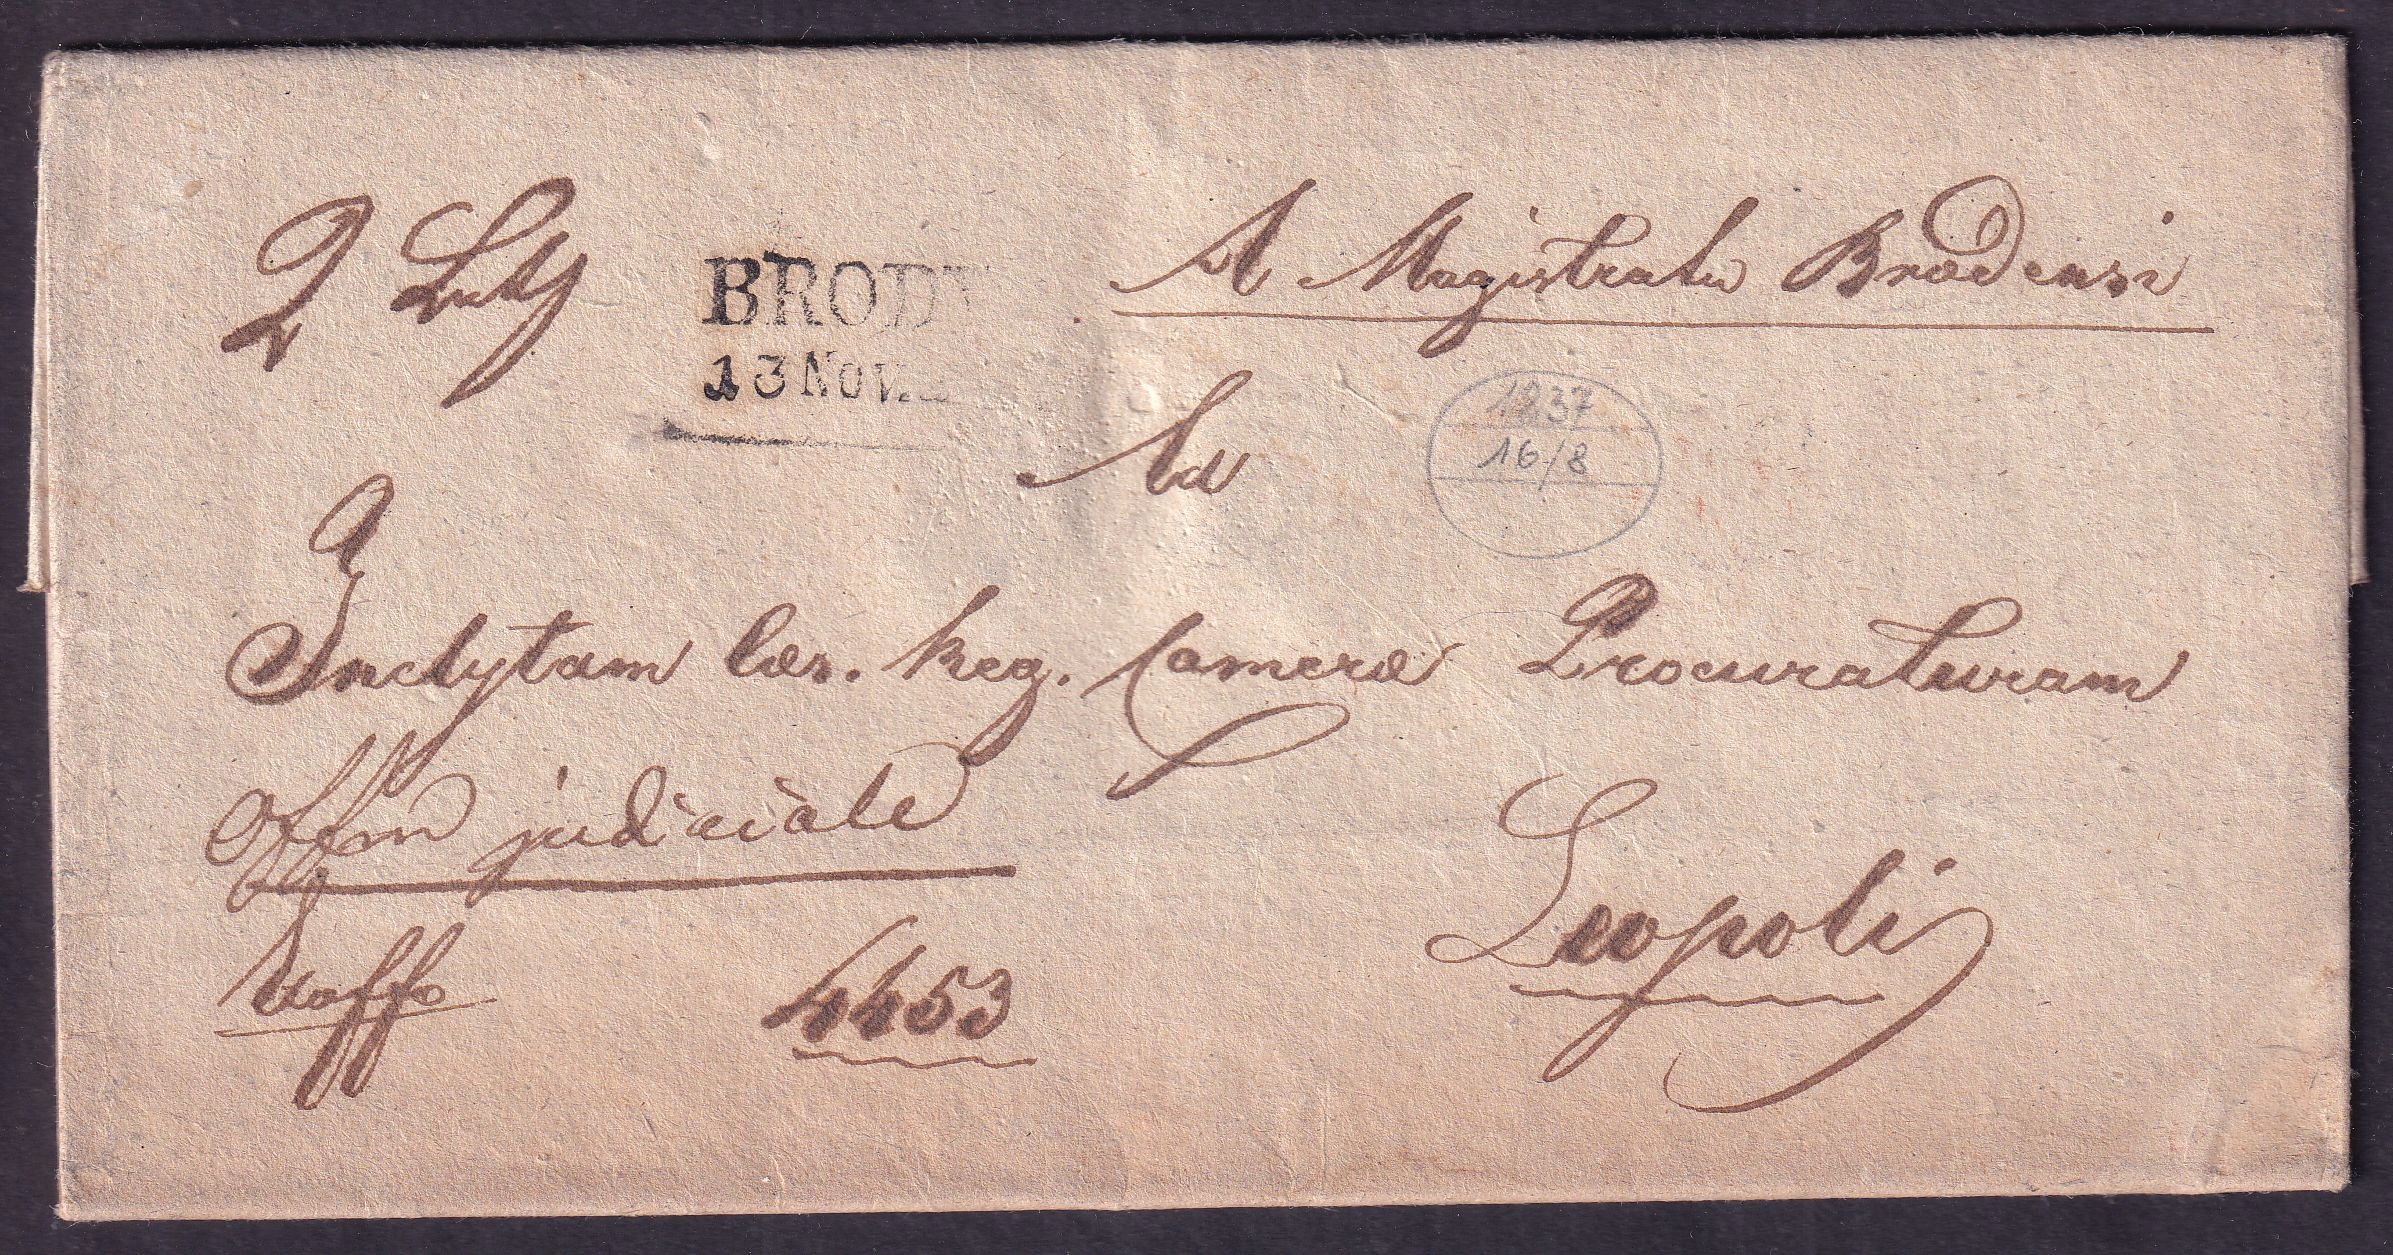 2 Loth
BRODY
13 Nov.
A Magistratu Brodensi
1837
16/8
Ad
Inclytam Cæs. Reg. Cameræ Procuraturam
Offm judiciale
Leopoli
4453